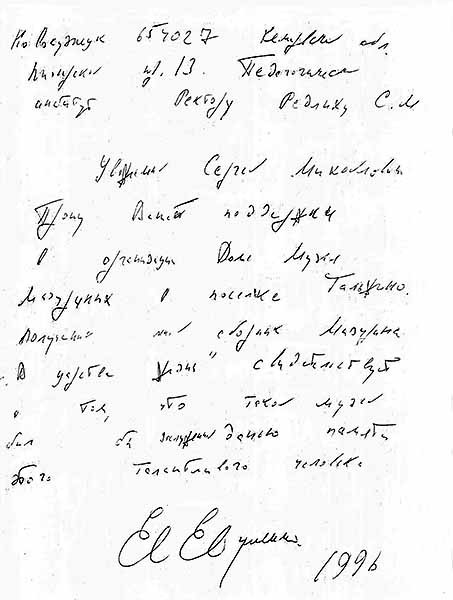 Новокузнецк 654027 Кемеровск обл.
ул. 13. Педагогическ
институт Ректору Редлиху С. М
Уважаемый Сергей Михайлович
Прошу Вашей поддержки
в организации Дома Музея
Мазуриных в поселке Тальжино.
Полученный мной сборник Мазурина
„В царстве жизни" свидетельствует
о том, что такой музей
был бы заслуженной данью памяти
этого талантливого человека
Ев Евтушенко.
1996